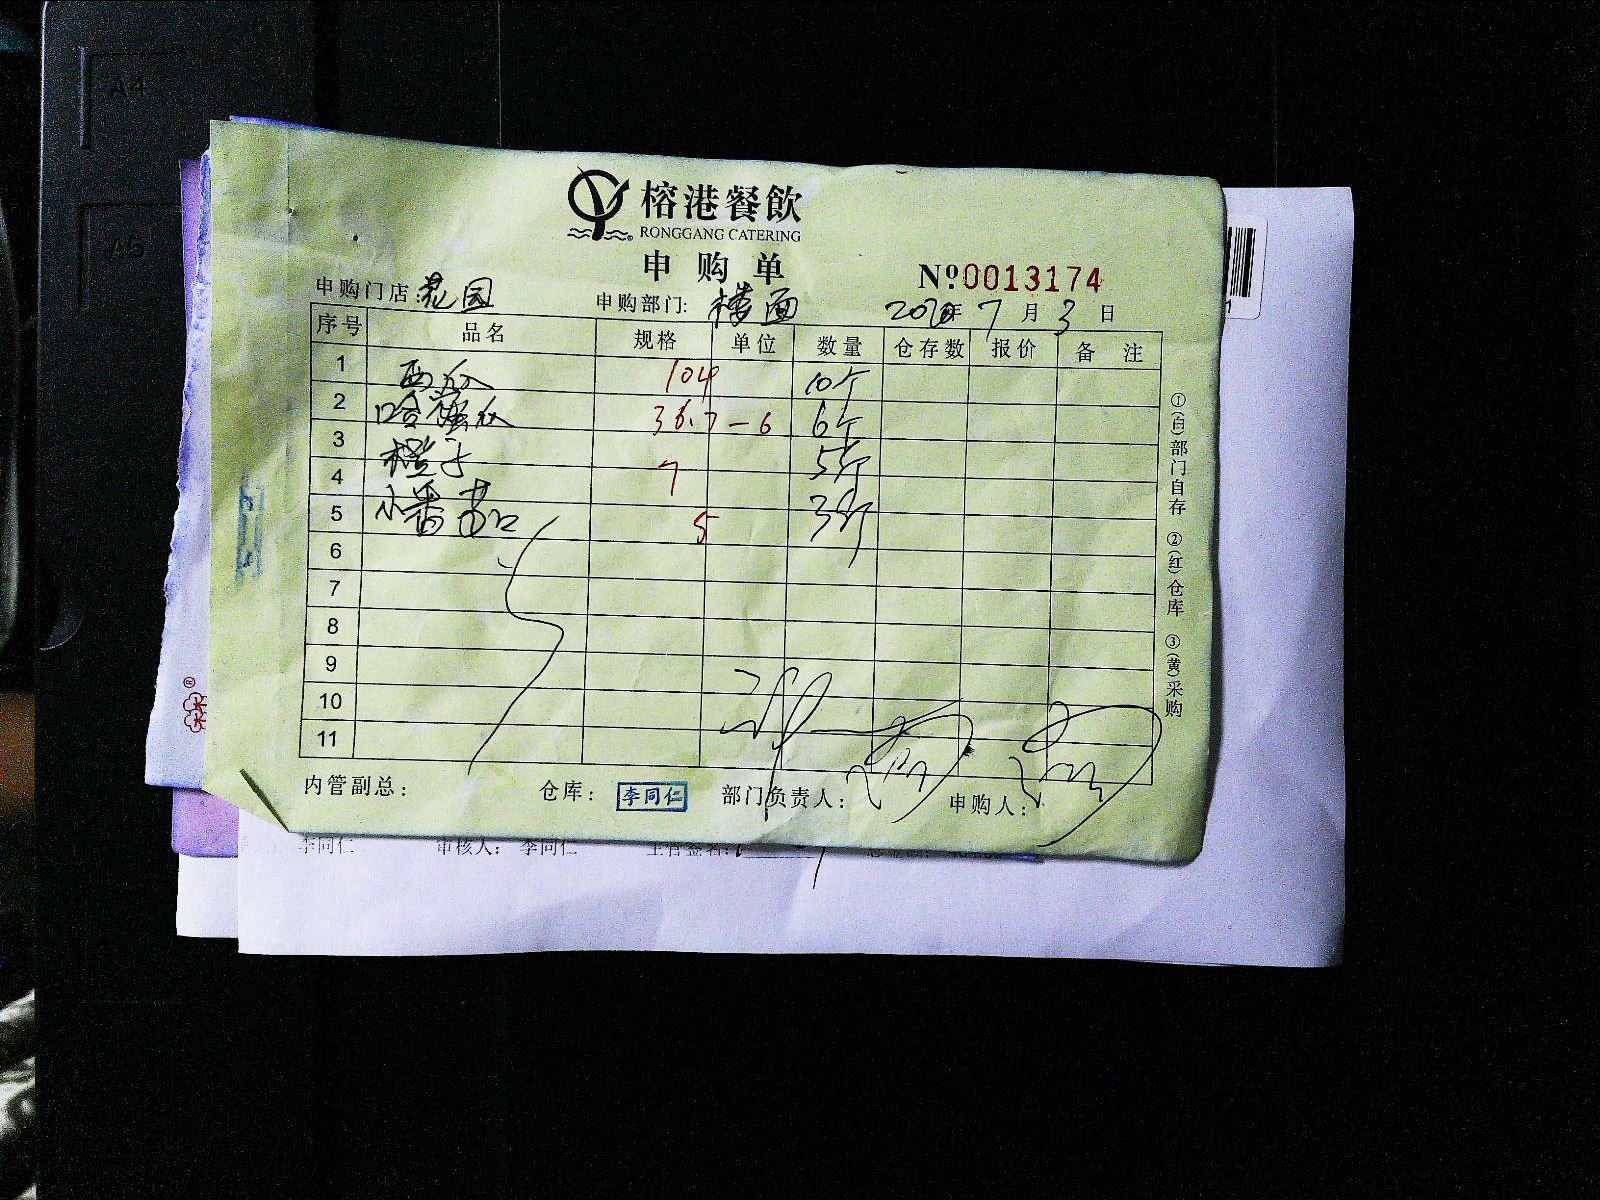 A4
A5
榕港餐飲
RONGGANG CATERING
申购单
№0013174
申购门店:花园 申购部门:楼面 2020年7月3日
序号 品名 规格 单位 数量 仓存数 报价 备注
1 西瓜 104 10个
2 哈蜜瓜 36.7-6 6个
3 橙子 7 5斤
4 小番茄 5 3斤
5
6
7
8
9
10
11
内管副总: 仓库: 李同仁 部门负责人: 申购人:
①(白)部门自存 ②(红)仓库 ③(黄)采购
李同仁 审核人: 李同仁 主管签名: